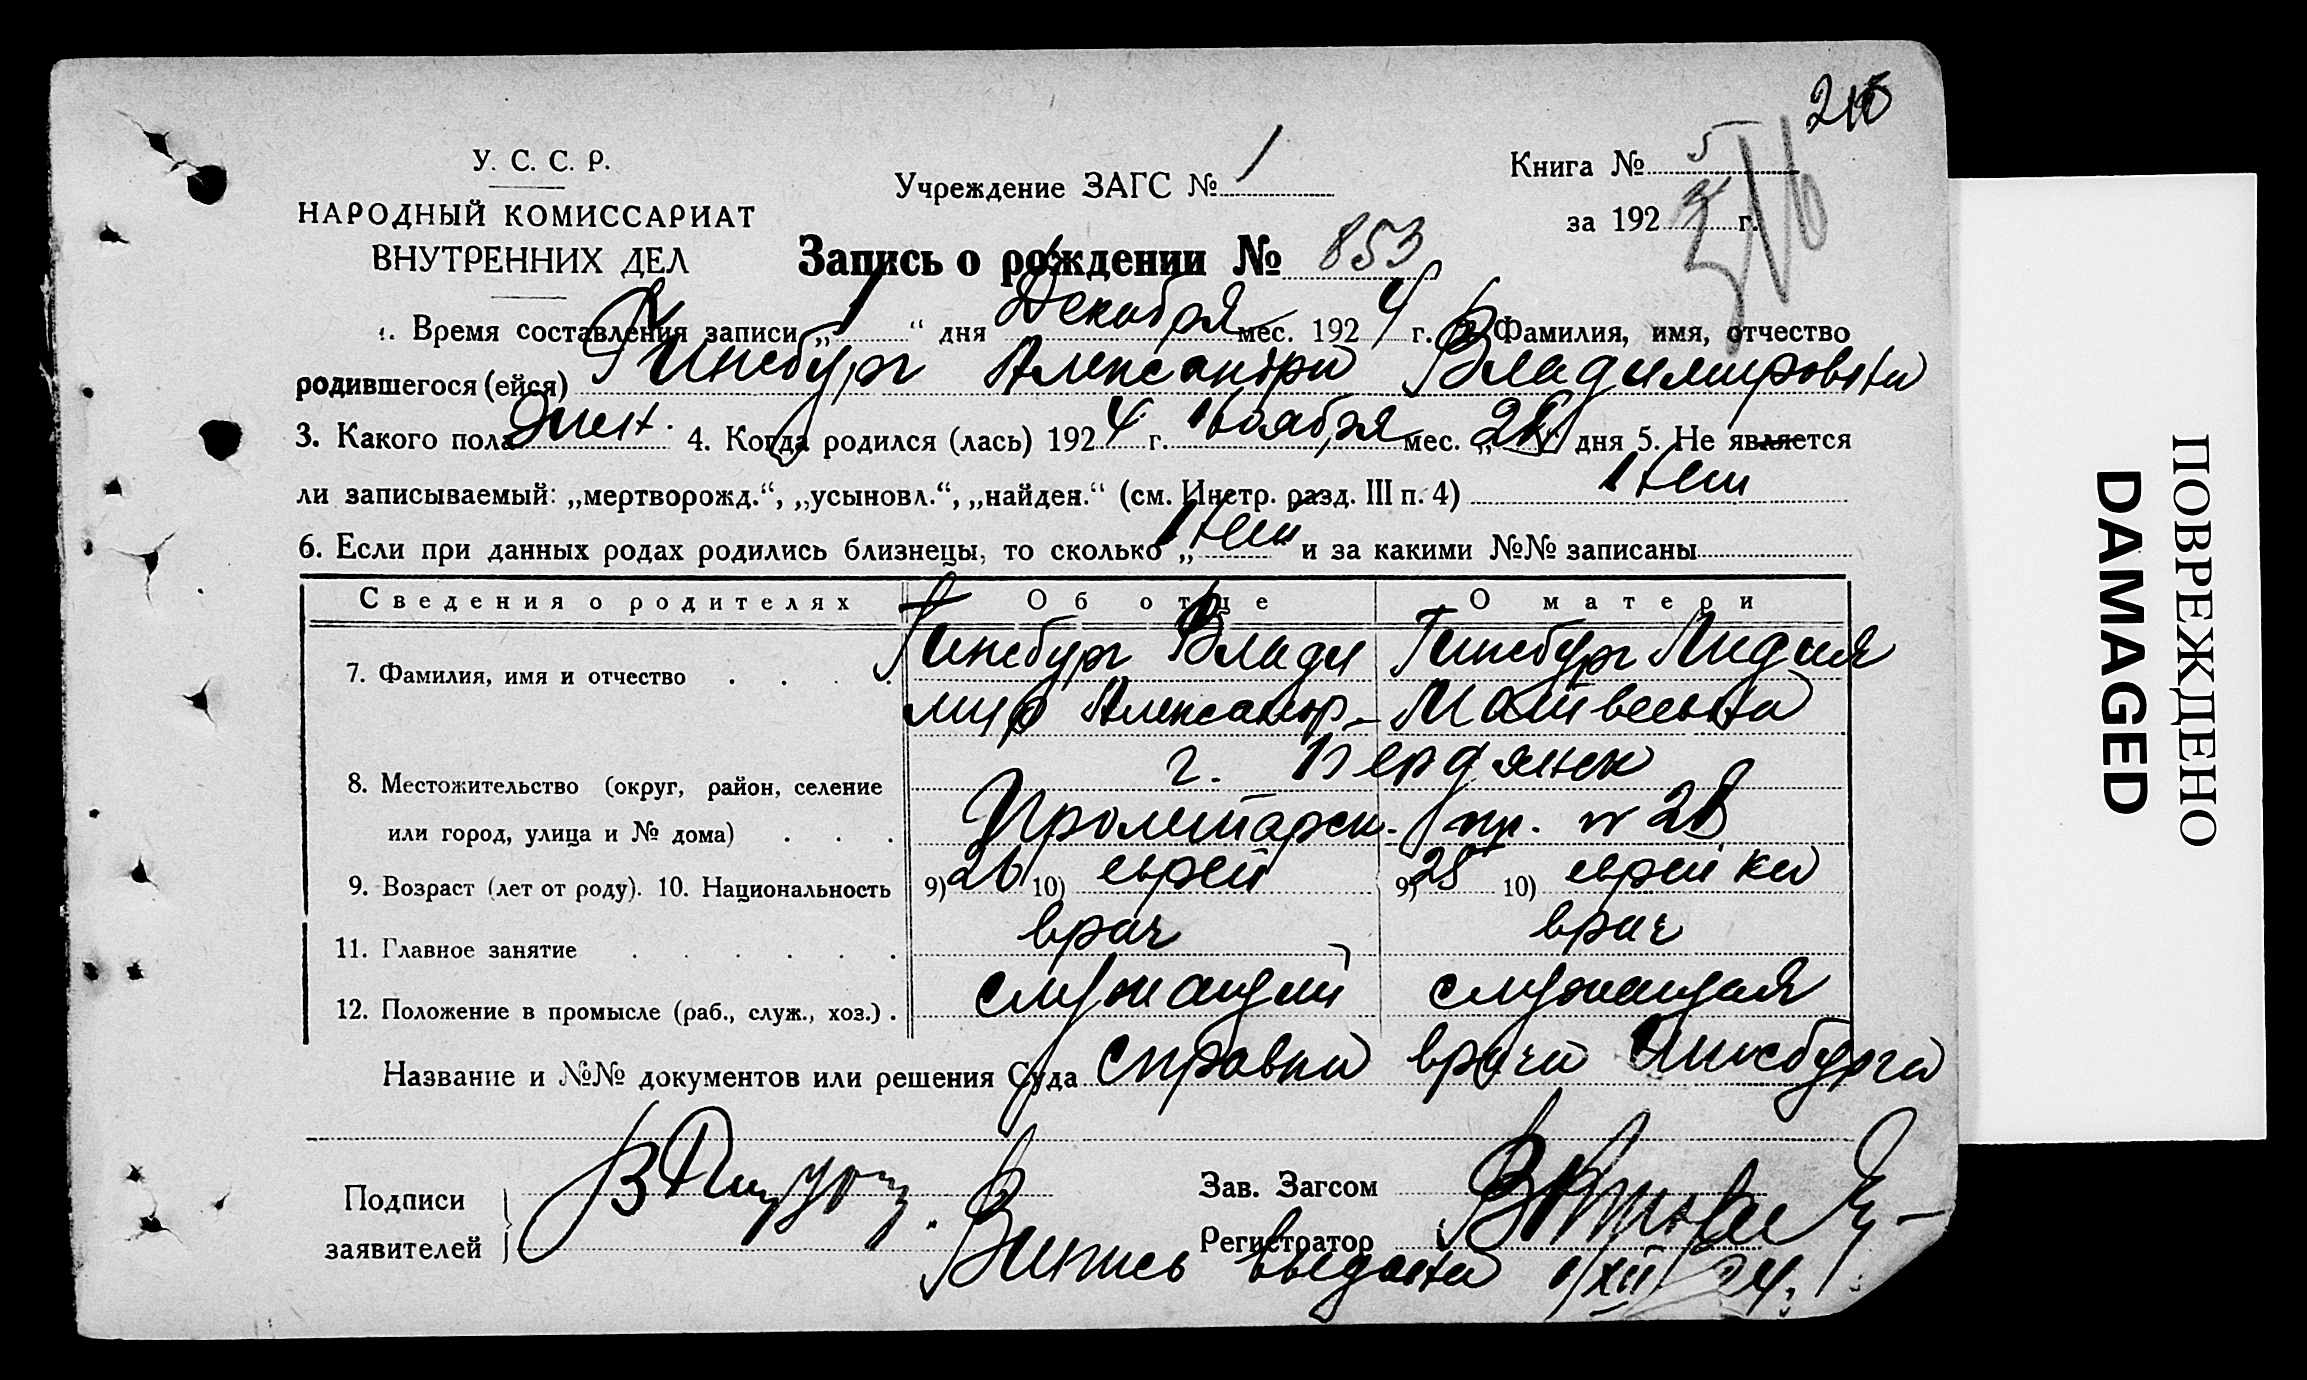 У. С. С. Р.
НАРОДНЫЙ КОМИССАРИАТ
ВНУТРЕННИХ ДЕЛ
Учреждение ЗАГС № 1
Книга № 5
за 192 г.
Запись о рождении № 853
1. Время составления записи „1“ дня Декабря мес. 1924 г. 2. Фамилия, имя, отчество
родившегося (ейся) Гинсбург Александра Владимировна
3. Какого пола жен. 4. Когда родился (лась) 1924 г. Ноября мес. „ дня 5. Не является
ли записываемый: „мертворожд.“, „усыновл.“, „найден.“ (см. Инстр. разд. III п. 4) Нет
6. Если при данных родах родились близнецы, то сколько „Нет“ и за какими №№ записаны
Сведения о родителях Об отце О матери
7. Фамилия, имя и отчество Гинсбург Влади Гинсбург Лидия
мир Александр. Матвеевна
8. Местожительство (округ, район, селение г. Бердянск
или город, улица и № дома) Пролетарск. пр. № 28
9. Возраст (лет от роду). 10. Национальность 9) 26 10) еврей 9) 25 10) еврейка
11. Главное занятие врач врач
12. Положение в промысле (раб., служ., хоз.) служащий служащая
Название и №№ документов или решения Суда справка врача Гинсбурга
Подписи
заявителей
Зав. Загсом
Регистратор
Выпись выдана 1/XII 24.
ПОВРЕЖДЕНО
DAMAGED